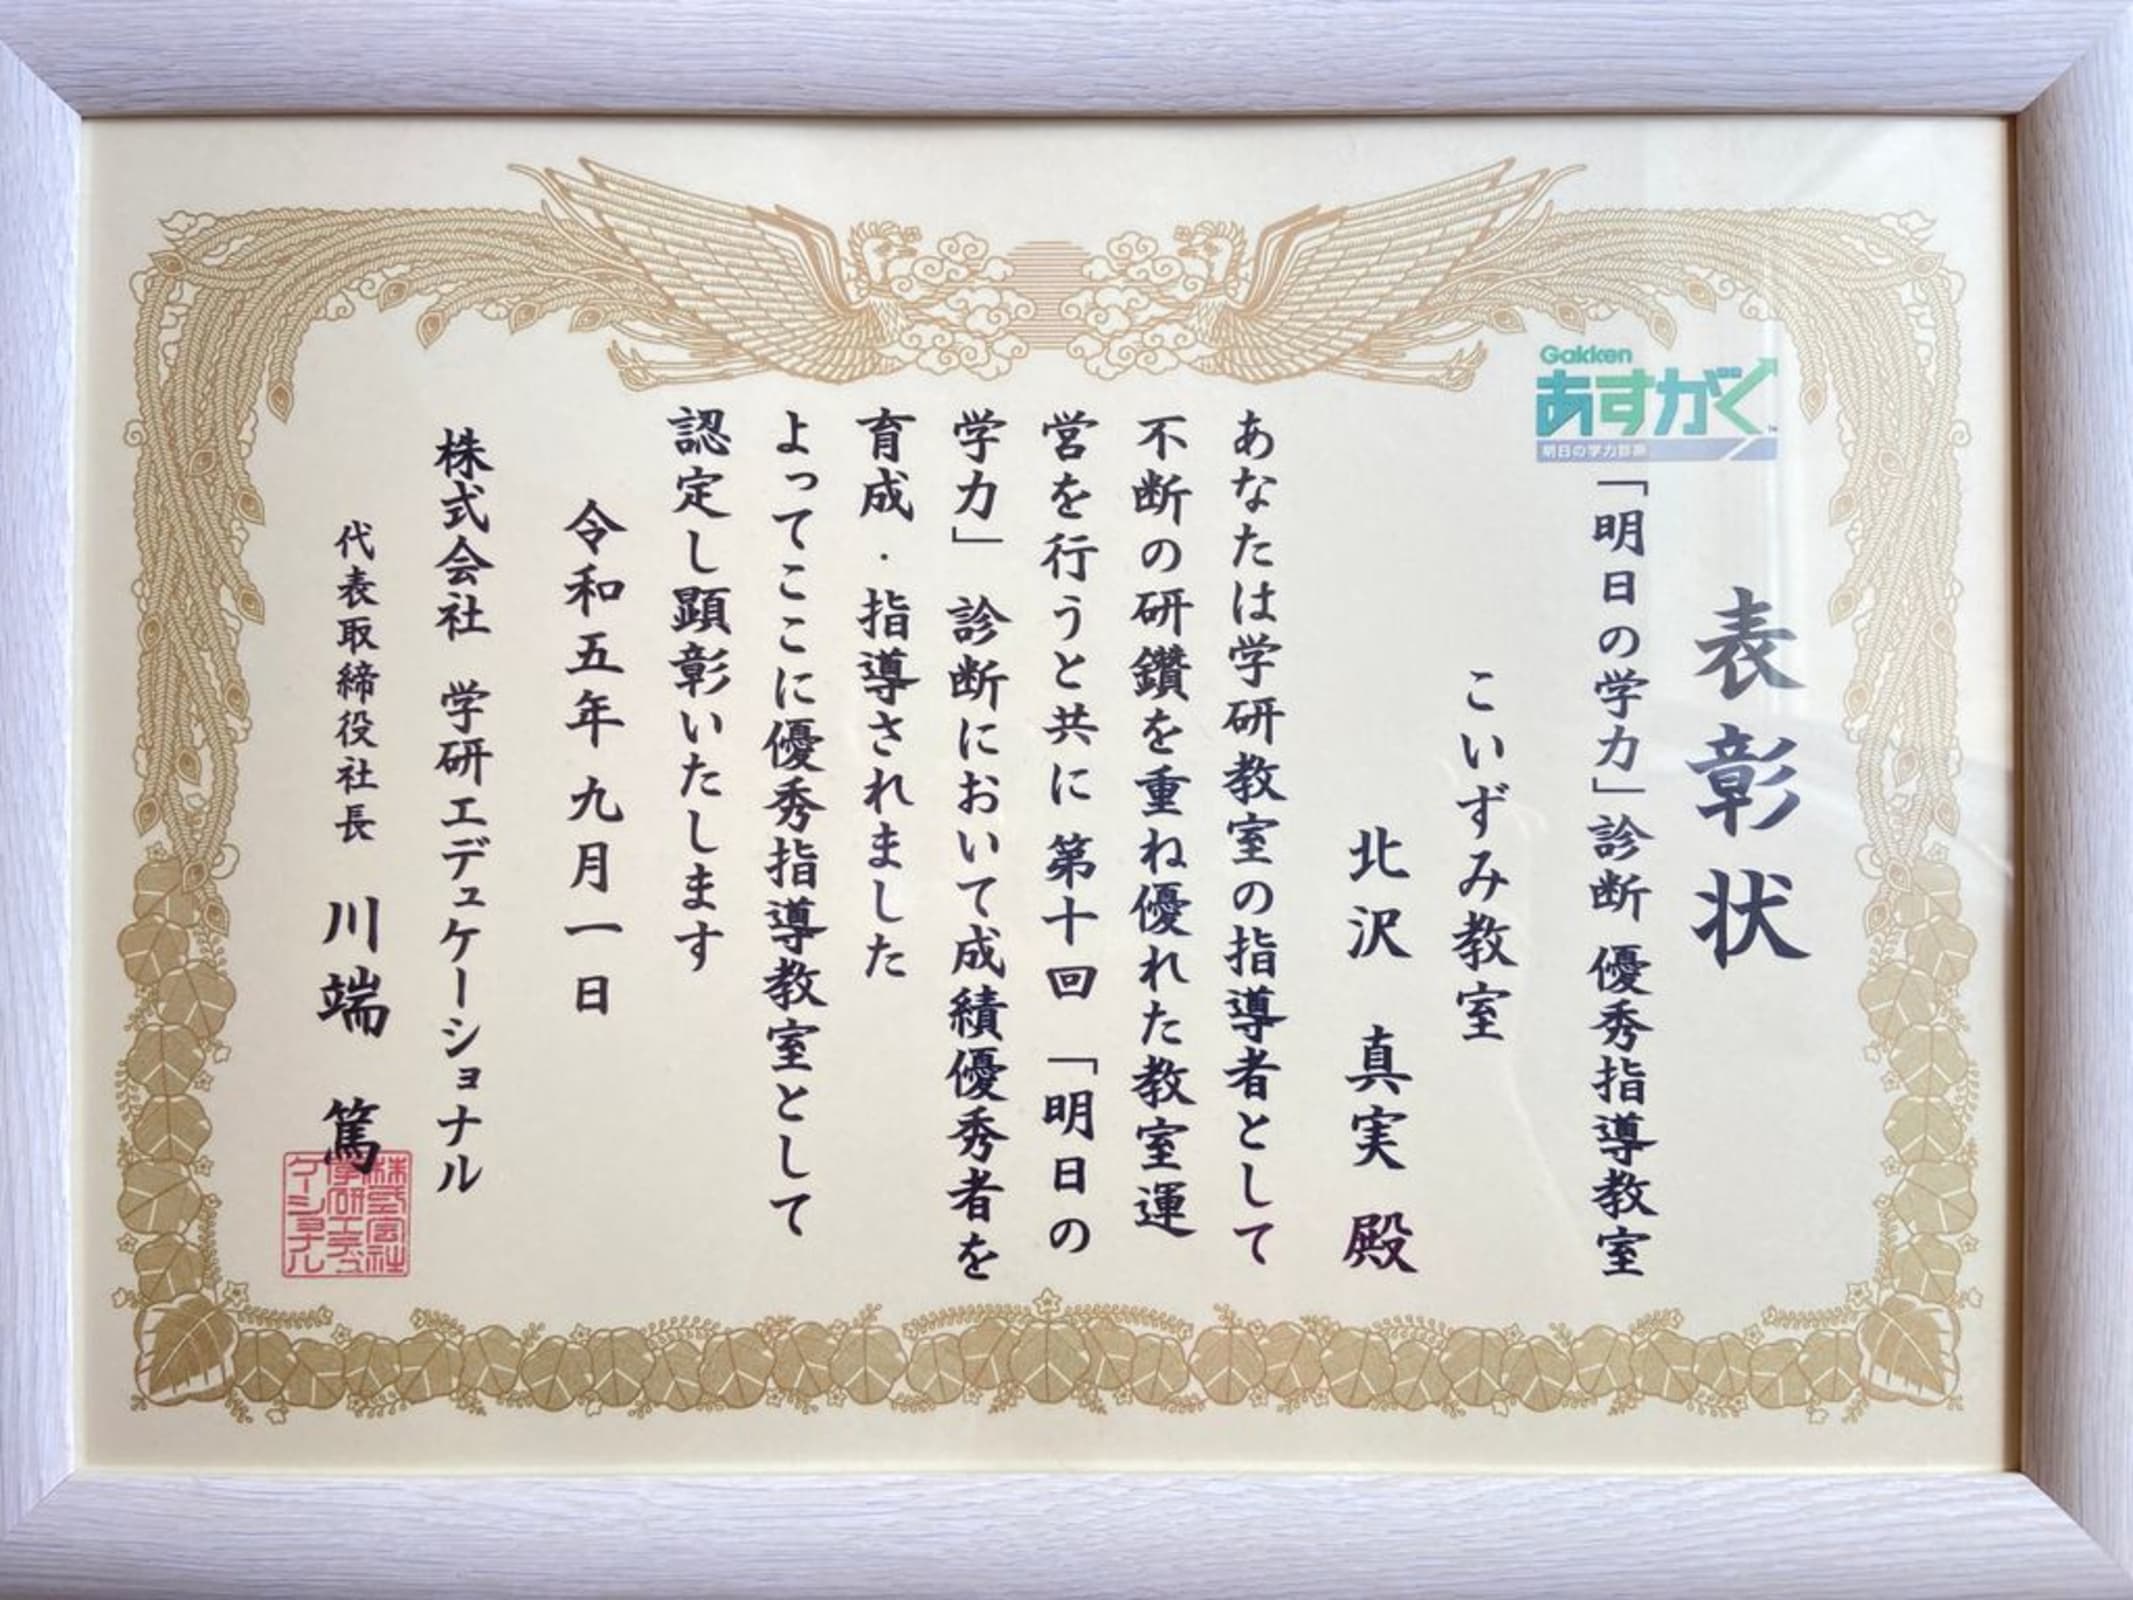 表彰状
Gakken
あすがく
明日の学力診断
「明日の学力」診断 優秀指導教室
こいずみ教室
北沢 真実 殿
あなたは学研教室の指導者として
不断の研鑽を重ね優れた教室運
営を行うと共に 第十回 「明日の
学力」 診断において成績優秀者を
育成・指導されました
よってここに優秀指導教室として
認定し顕彰いたします
令和五年九月一日
株式会社 学研エデュケーショナル
代表取締役社長 川端 篤
株式会社
学研エデュ
ケーショナル